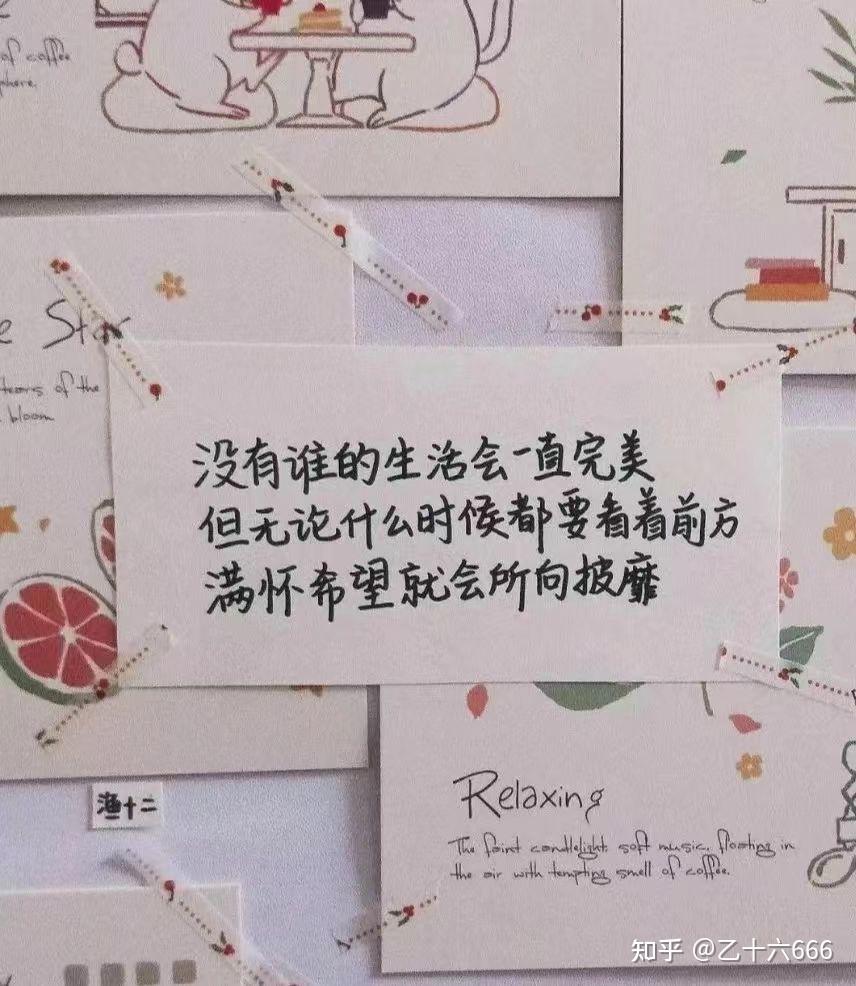 of coffee
e Star
tears of the
bloom
没有谁的生活会一直完美
但无论什么时候都要看着前方
满怀希望就会所向披靡
渔十二
Relaxing
The faint candlelight, soft music, floating in
the air with tempting smell of coffee.
知乎 @乙十六666